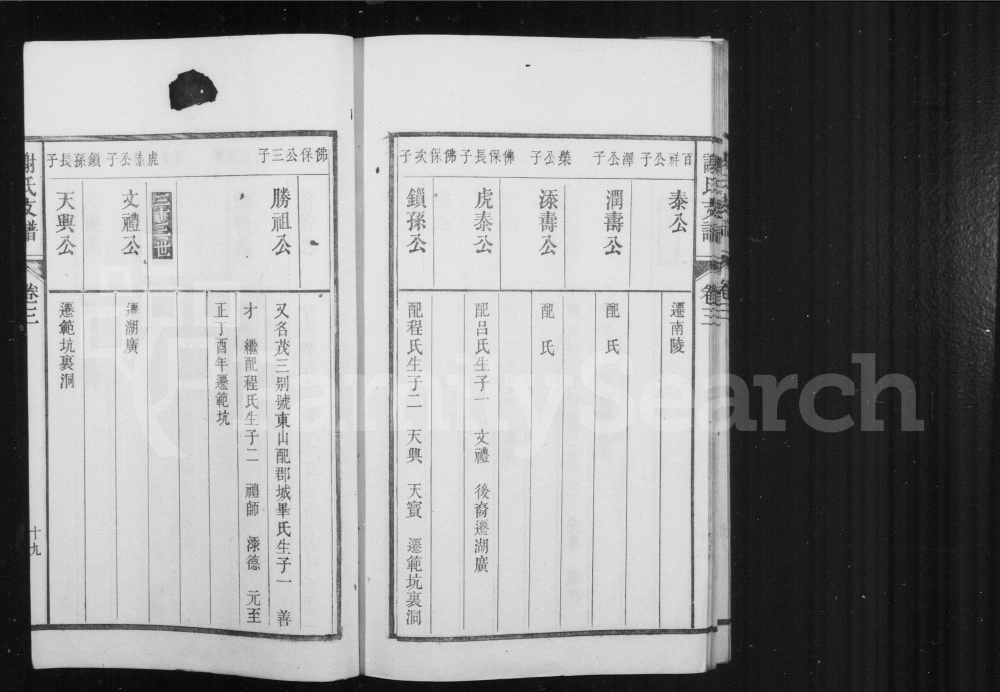 謝氏支譜
卷三
百祥公子
泰公
遷南陵
澤公子
潤壽公
配 氏
榮公子
添壽公
配 氏
佛保長子
虎泰公
配呂氏生子一 文禮 後裔遷湖廣
佛保次子
鎖孫公
配程氏生子二 天興 天寶 遷範坑裏洞
佛保公三子
勝祖公
又名茂三别號東山配郡城畢氏生子一 善
才 繼配程氏生子二 禮師 添德 元至
正丁酉年遷範坑
三十三世
虎泰公子
文禮公
遷湖廣
鎖孫長子
天興公
遷範坑裏洞
謝氏支譜
卷三
十九
FamilySearch